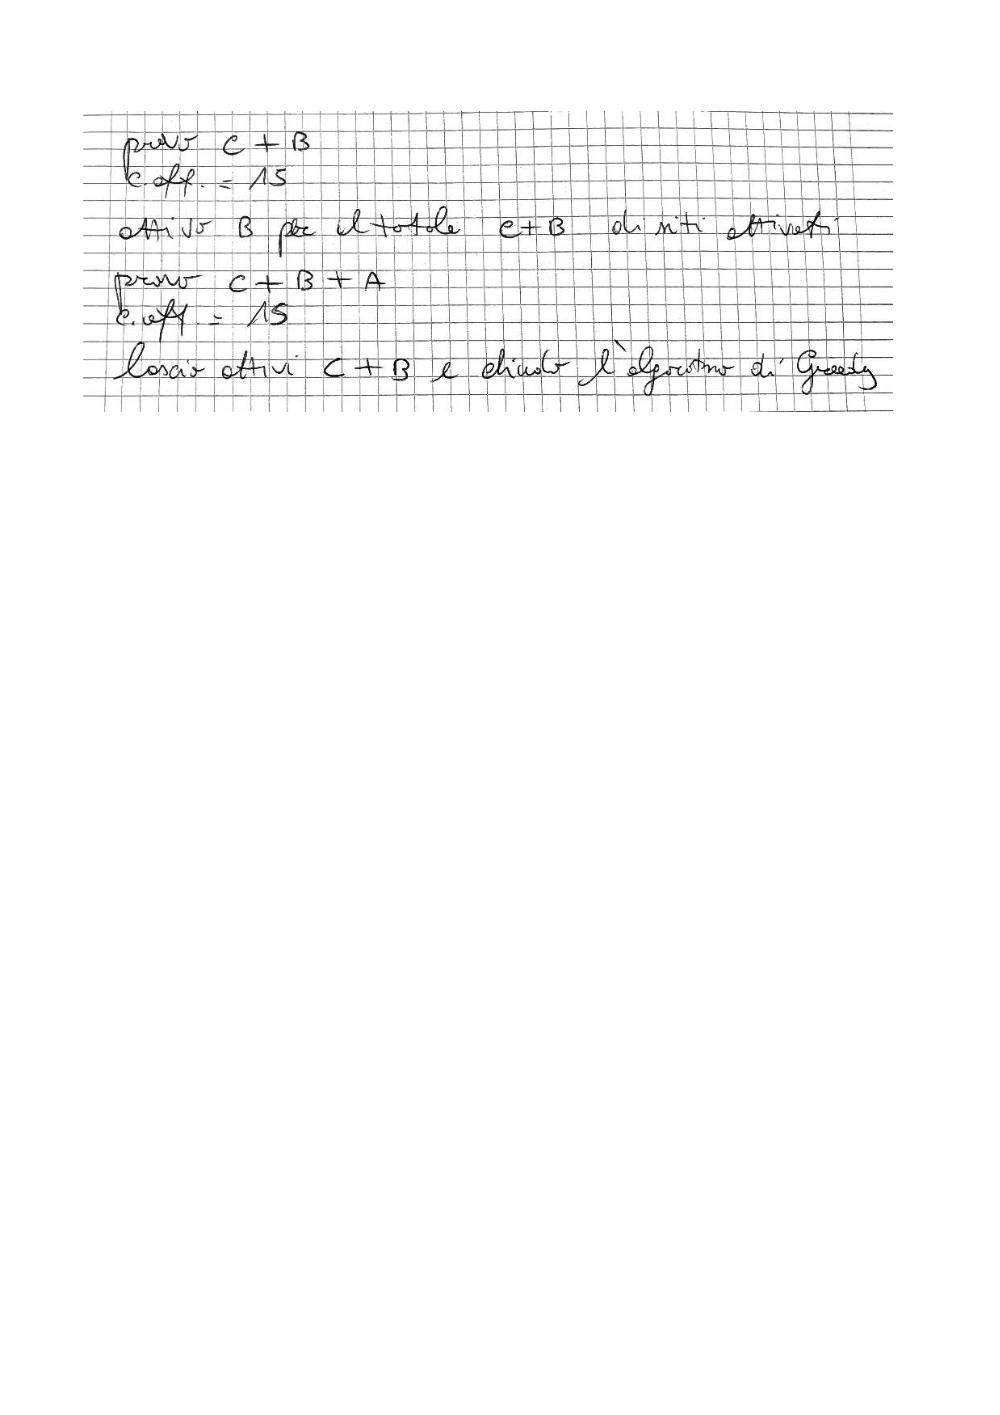 provo C + B
C.off. = 15
attivo B per il totale C+B di siti attivati
provo C + B + A
C.off. = 15
lascio attivi C + B e chiudo l'algoritmo di Greedy